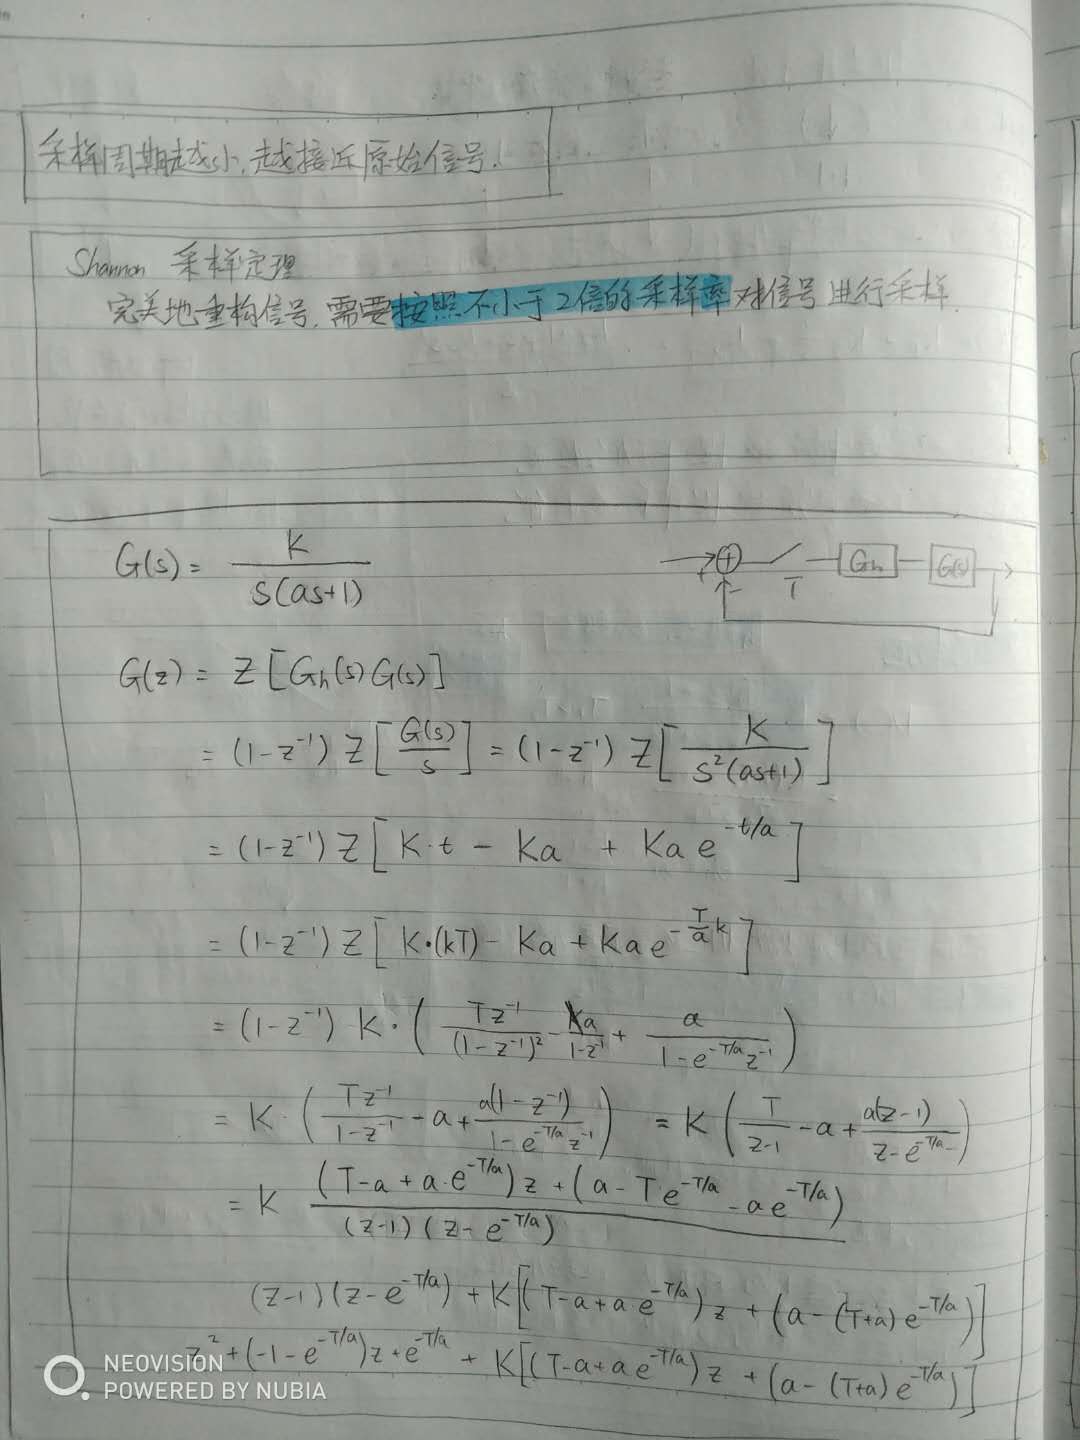 采样周期越小,越接近原始信号.
Shannon 采样定理
完美地重构信号,需要按照不小于2倍的采样率对信号进行采样.
G(s) = K / s(as+1)
+ - T Gh G(s)
G(z) = Z[Gh(s)G(s)]
= (1-z⁻¹) Z[G(s)/s] = (1-z⁻¹) Z[K / s²(as+1)]
= (1-z⁻¹) Z[K·t - Ka + Ka e^(-t/a)]
= (1-z⁻¹) Z[K·(kT) - Ka + Ka e^(-(T/a)k)]
= (1-z⁻¹) K·(Tz⁻¹/(1-z⁻¹)² - a/(1-z⁻¹) + a/(1-e^(-T/a)z⁻¹))
= K·(Tz⁻¹/(1-z⁻¹) - a + a(1-z⁻¹)/(1-e^(-T/a)z⁻¹)) = K(T/(z-1) - a + a(z-1)/(z-e^(-T/a)))
= K ((T-a+a·e^(-T/a))z + (a-Te^(-T/a)-ae^(-T/a))) / (z-1)(z-e^(-T/a))
(z-1)(z-e^(-T/a)) + K[(T-a+a e^(-T/a))z + (a-(T+a)e^(-T/a))]
z² + (-1-e^(-T/a))z + e^(-T/a) + K[(T-a+ae^(-T/a))z + (a-(T+a)e^(-T/a))]
NEOVISION
POWERED BY NUBIA